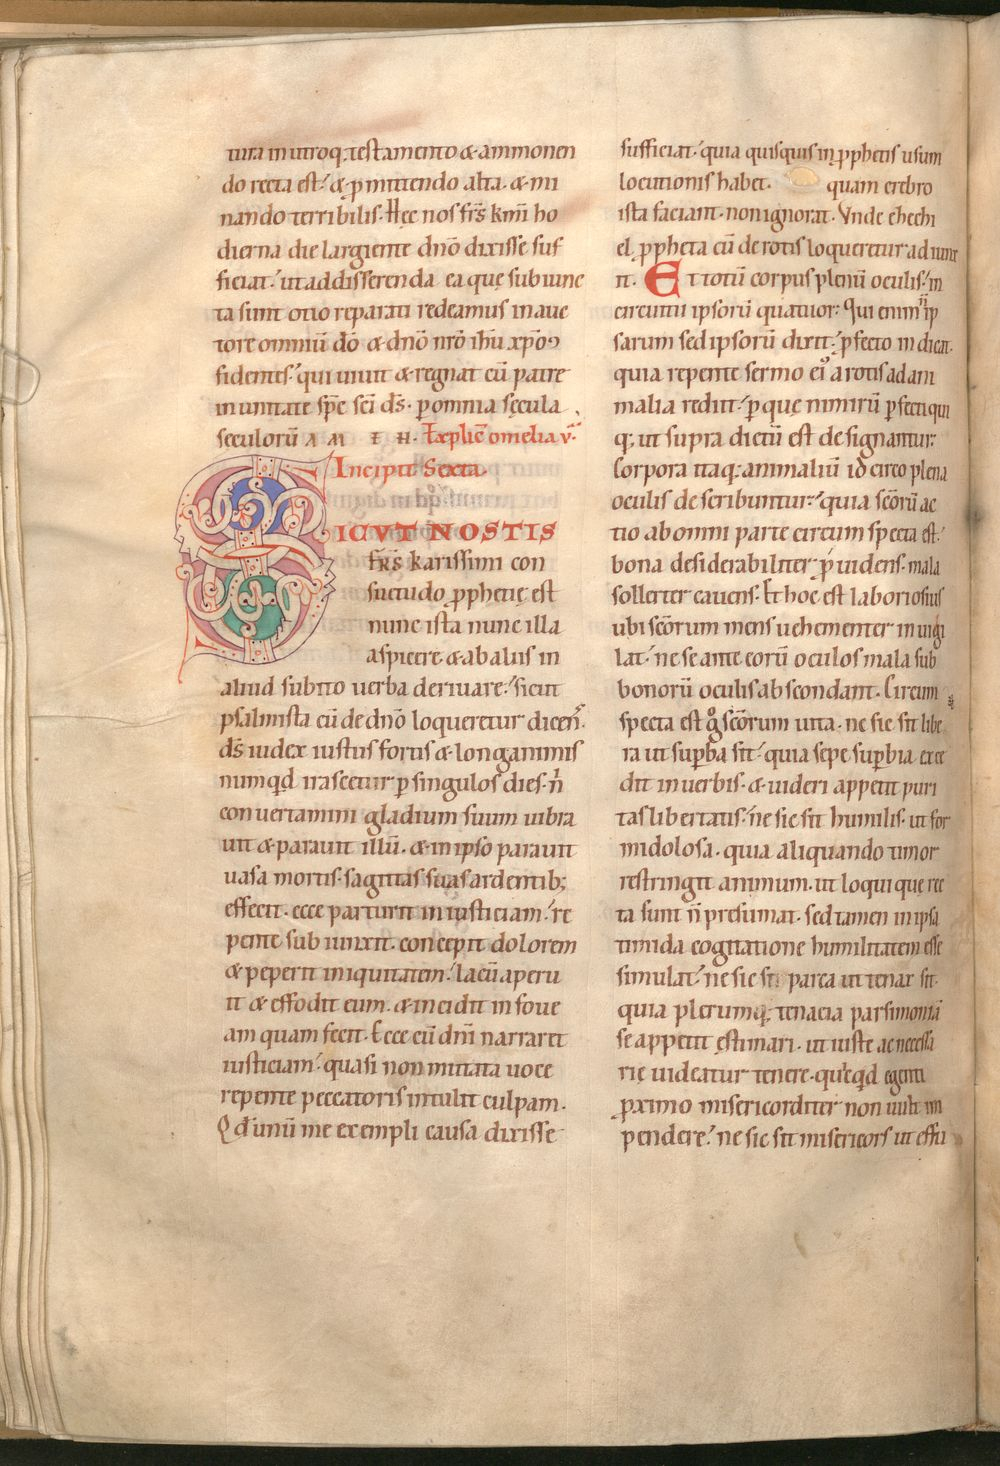 tura in utroq; testamento & ammonen
do recta est. & p̱mittendo alta. & mi
nando terribilis. Hęc nos frs̄ kmī ho
dierna die largiente dnō dixisse suf
ficiat. ut ad disserenda ea quę subiunc
ta sunt otio reparati redeamus in auc
tore omniū dō & dnō nrō ihū xpō ꝯ
fidentes. qui uiuit & regnat cū patre
in unitate spē sci ds̄. p̱ omnia sęcula
seculorū A M E N. Explic̄ omelia v.
Incipit Sexta.
SICVT NOSTIS
frs̄ karissimi con
suetudo p̱phetię est
nunc ista nunc illa
aspicere. & ab aliis in
aliud subito uerba deriuare. sicut
psalmista cū de dnō loqueretur dicens.
ds̄ iudex iustus fortis & longanimis
numqd irascetur p̱ singulos dies. n̄
conuertamini gladium suum uibra
uit & parauit illū. & in ipso parauit
uasa mortis. sagittas suas ardentib;
effecit. ecce parturit iniusticiam. re
pente subiunxit. concepit dolorem
& peperit iniquitatem. lacū aperu
it & effodit eum. & incidit in foue
am quam fecit. Ecce cū dnī narraret
iusticiam. quasi non mutata uoce
repente peccatoris intulit culpam.
Qd̄ unū me exempli causa dixisse
sufficiat. quia quisquis in p̱phetis usum
locutionis habet. quam crebro
ista faciant. non ignorat. Vnde & hiechi
el p̱pheta cū de rotis loqueretur adiunx
it. Et totū corpus plenū oculis. in
circuitu ipsorū quatuor. Qui enim n̄ ip
sarum sed ipsorū dixit. p̱fecto indicat.
quia repente sermo ei a rotis ad ani
malia rediit. p̱ quę nimirū p̱fecti qui
q; ut supra dictū est designantur.
Corpora itaq; animaliū idcirco plena
oculis describuntur. quia scōrū ac
tio ab omni parte circumspecta est.
bona desiderabiliter p̱uidens. mala
sollerter cauens. Et hoc est laboriosius
ubi scōrum mens uehementer inuigi
lat. ne se ante eorū oculos mala sub
bonorū oculis abscondant. Circum
specta est g° scōrum uita. ne sic sit libe
ra ut sup̱ba sit. quia sepe sup̱bia exce
dit in uerbis. & uideri appetit puri
tas libertatis. ne sic sit humilis. ut for
midolosa. quia aliquando timor
restringit animum. ut loqui quę rec
ta sunt n̄ presumat. sed tamen in ipsa
timida cogitatione humilitatem esse
simulat. ne sic sit parca ut tenax sit.
quia plerumq; tenacia parsimoniā
se appetit ęstimari. ut iuste ac necessa
rię uideatur tenere. quicqd egenti
p̱ximo misericorditer non uult im
pendere. ne sic sit misericors ut effu